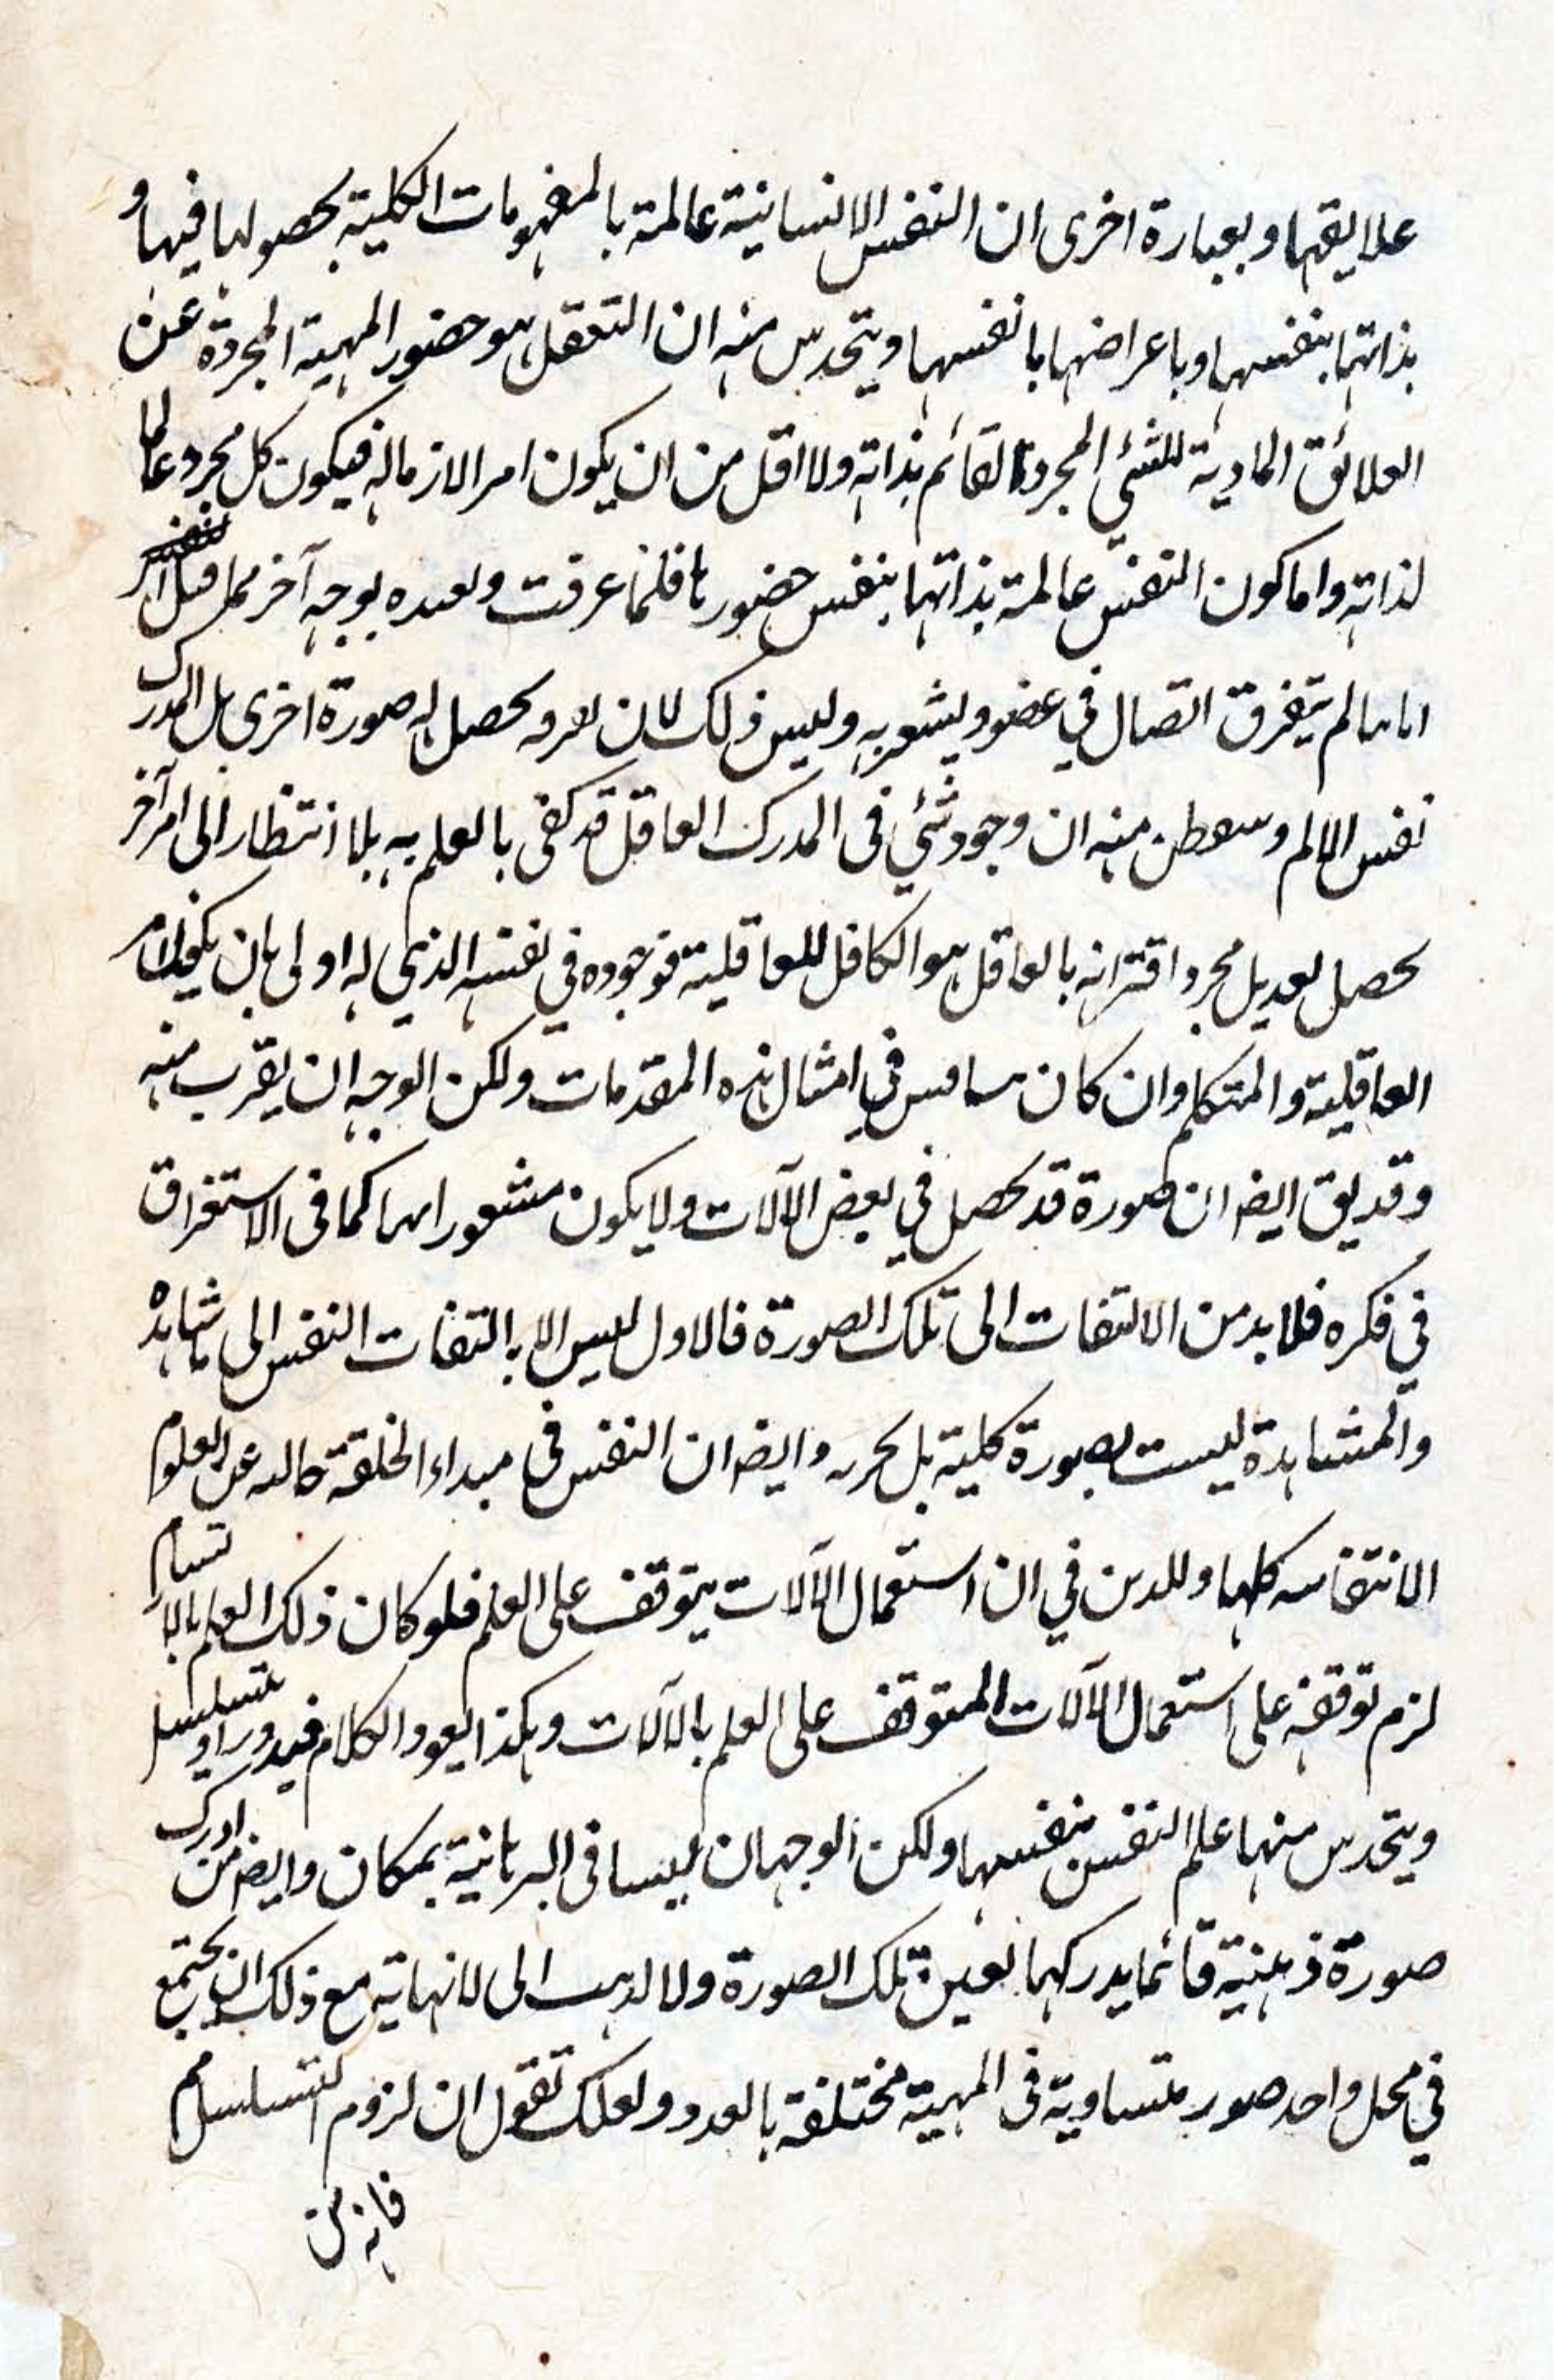 علايقها وبعبارة اخرى ان النفس الانسانية عالمة بالمفهومات الكلية بحصولها فيها و
بذاتها بنفسها وباعراضها بانفسها ويتحدس منه ان التعقل هو حضور المهية المجردة عن
العلائق المادية للشئ المجرد القائم بذاته ولا اقل من ان يكون امرا لازما له فيكون كل مجرد عالما
لذاته واما كون النفس عالمة بذاتها بنفس حضورها فلما عرفت ولعده بوجه آخر مما قيل
لم يتفرق اتصال في عضو ويشعر به وليس ذلك لان يحصل له صورة اخرى بل المدرك
نفس الالم منه ان وجود شئ في المدرك العاقل قد كفى بالعلم به بلا انتظار الى امر آخر
يحصل بعد بل مجرد اقترانه بالعاقل هو الكافل للعاقلية فوجوده في نفسه الذي له اولى بان
العاقلية والمتكلم وان كان في امثال هذه المقدمات ولكن الوجه ان يقرب منه
وقد يق ايضا ان صورة قد تحصل في بعض الآلات ولا يكون مشعورا بها كما في الاستغراق
في فكره فلا بد من الالتفات الى تلك الصورة فالاول ليس الا بالتفات النفس الى ما شاهده
والمشاهدة ليست بصورة كلية بل وايضا ان النفس في مبداء الخلقة خالية عن العلوم
كلها في ان استعمال الآلات يتوقف على العلم فلو كان ذلك العلم بالارتسام
لزم توقفه على استعمال الآلات المتوقف على العلم بالآلات وهكذا يعود الكلام فيدور او يتسلسل
ويتحدس منها علم النفس بنفسها ولكن الوجهان ليسا في البرهانية بمكان وايضا من ادرك
صورة ذهنية فانما يدركها بعين تلك الصورة ولا لذهب الى لا نهاية مع ذلك ان يجتمع
في محل واحد صور متساوية في المهية مختلفة بالعدد ولعلك تقول ان لزوم التسلسل مم
فانه من